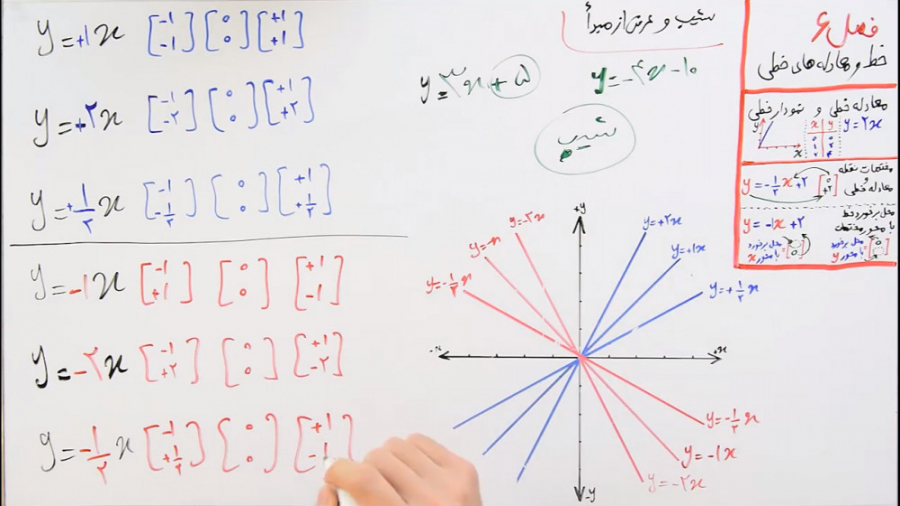 y=+1x [-1 -1] [0 0] [+1 +1]
y=+۲x [-1 -۲] [0 0] [+1 +۲]
y=+1/۲x [-1 -1/۲] [0 0] [+1 +1/۲]
y=-1x [-1 +1] [0 0] [+1 -1]
y=-۲x [-1 +۲] [0 0] [+1 -۲]
y=-1/۲x [-1 +1/۲] [0 0] [+1 -1
شیب و عرض از مبدأ
y=۳x+۵
y=-۴x-۱۰
شیب
+y
y=-۲x
y=+۲x
y=-x
y=+1x
y=-1/۲x
y=+1/۲x
-x
+x
y=-1/۲x
y=-1x
y=-۲x
-y
فصل ۶
خط و معادله های خطی
معادله خطی و نمودار خطی
y
x
x y
y=۲x
مختصات نقطه
و
معادله خطی
y=-1/۲x+۲ [0 +۲]
محل برخورد خط
با محور مختصات
y=-1x+۲
محل برخورد
با محور x
محل برخورد
با محور y